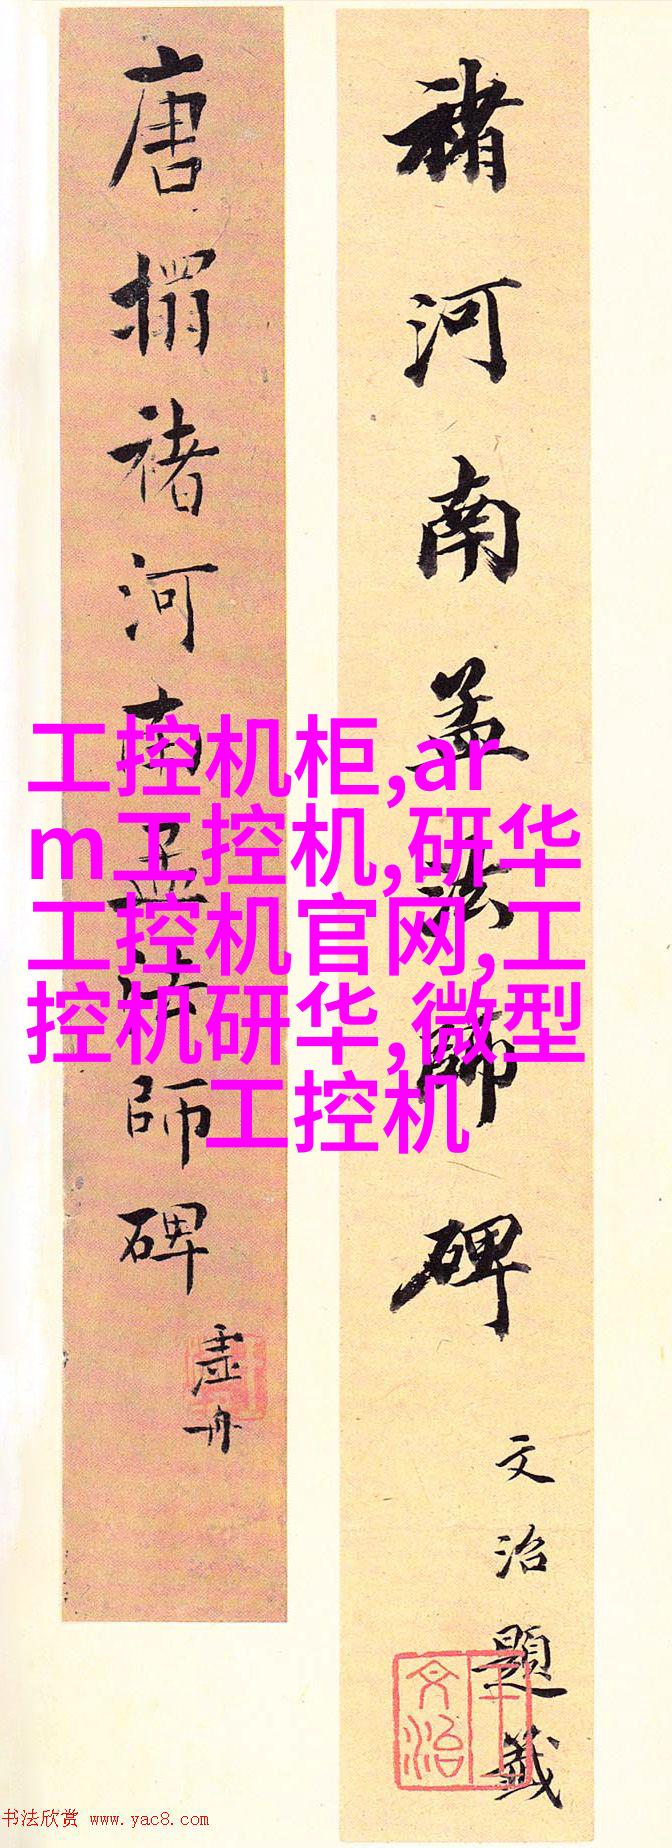 褚河南孟法師碑
文治題籤
王文治
唐搨褚河南孟法師碑
虛舟
工控机柜,ar
m工控机,研华
工控机官网,工
控机研华,微型
工控机
书法欣赏 www.yac8.com